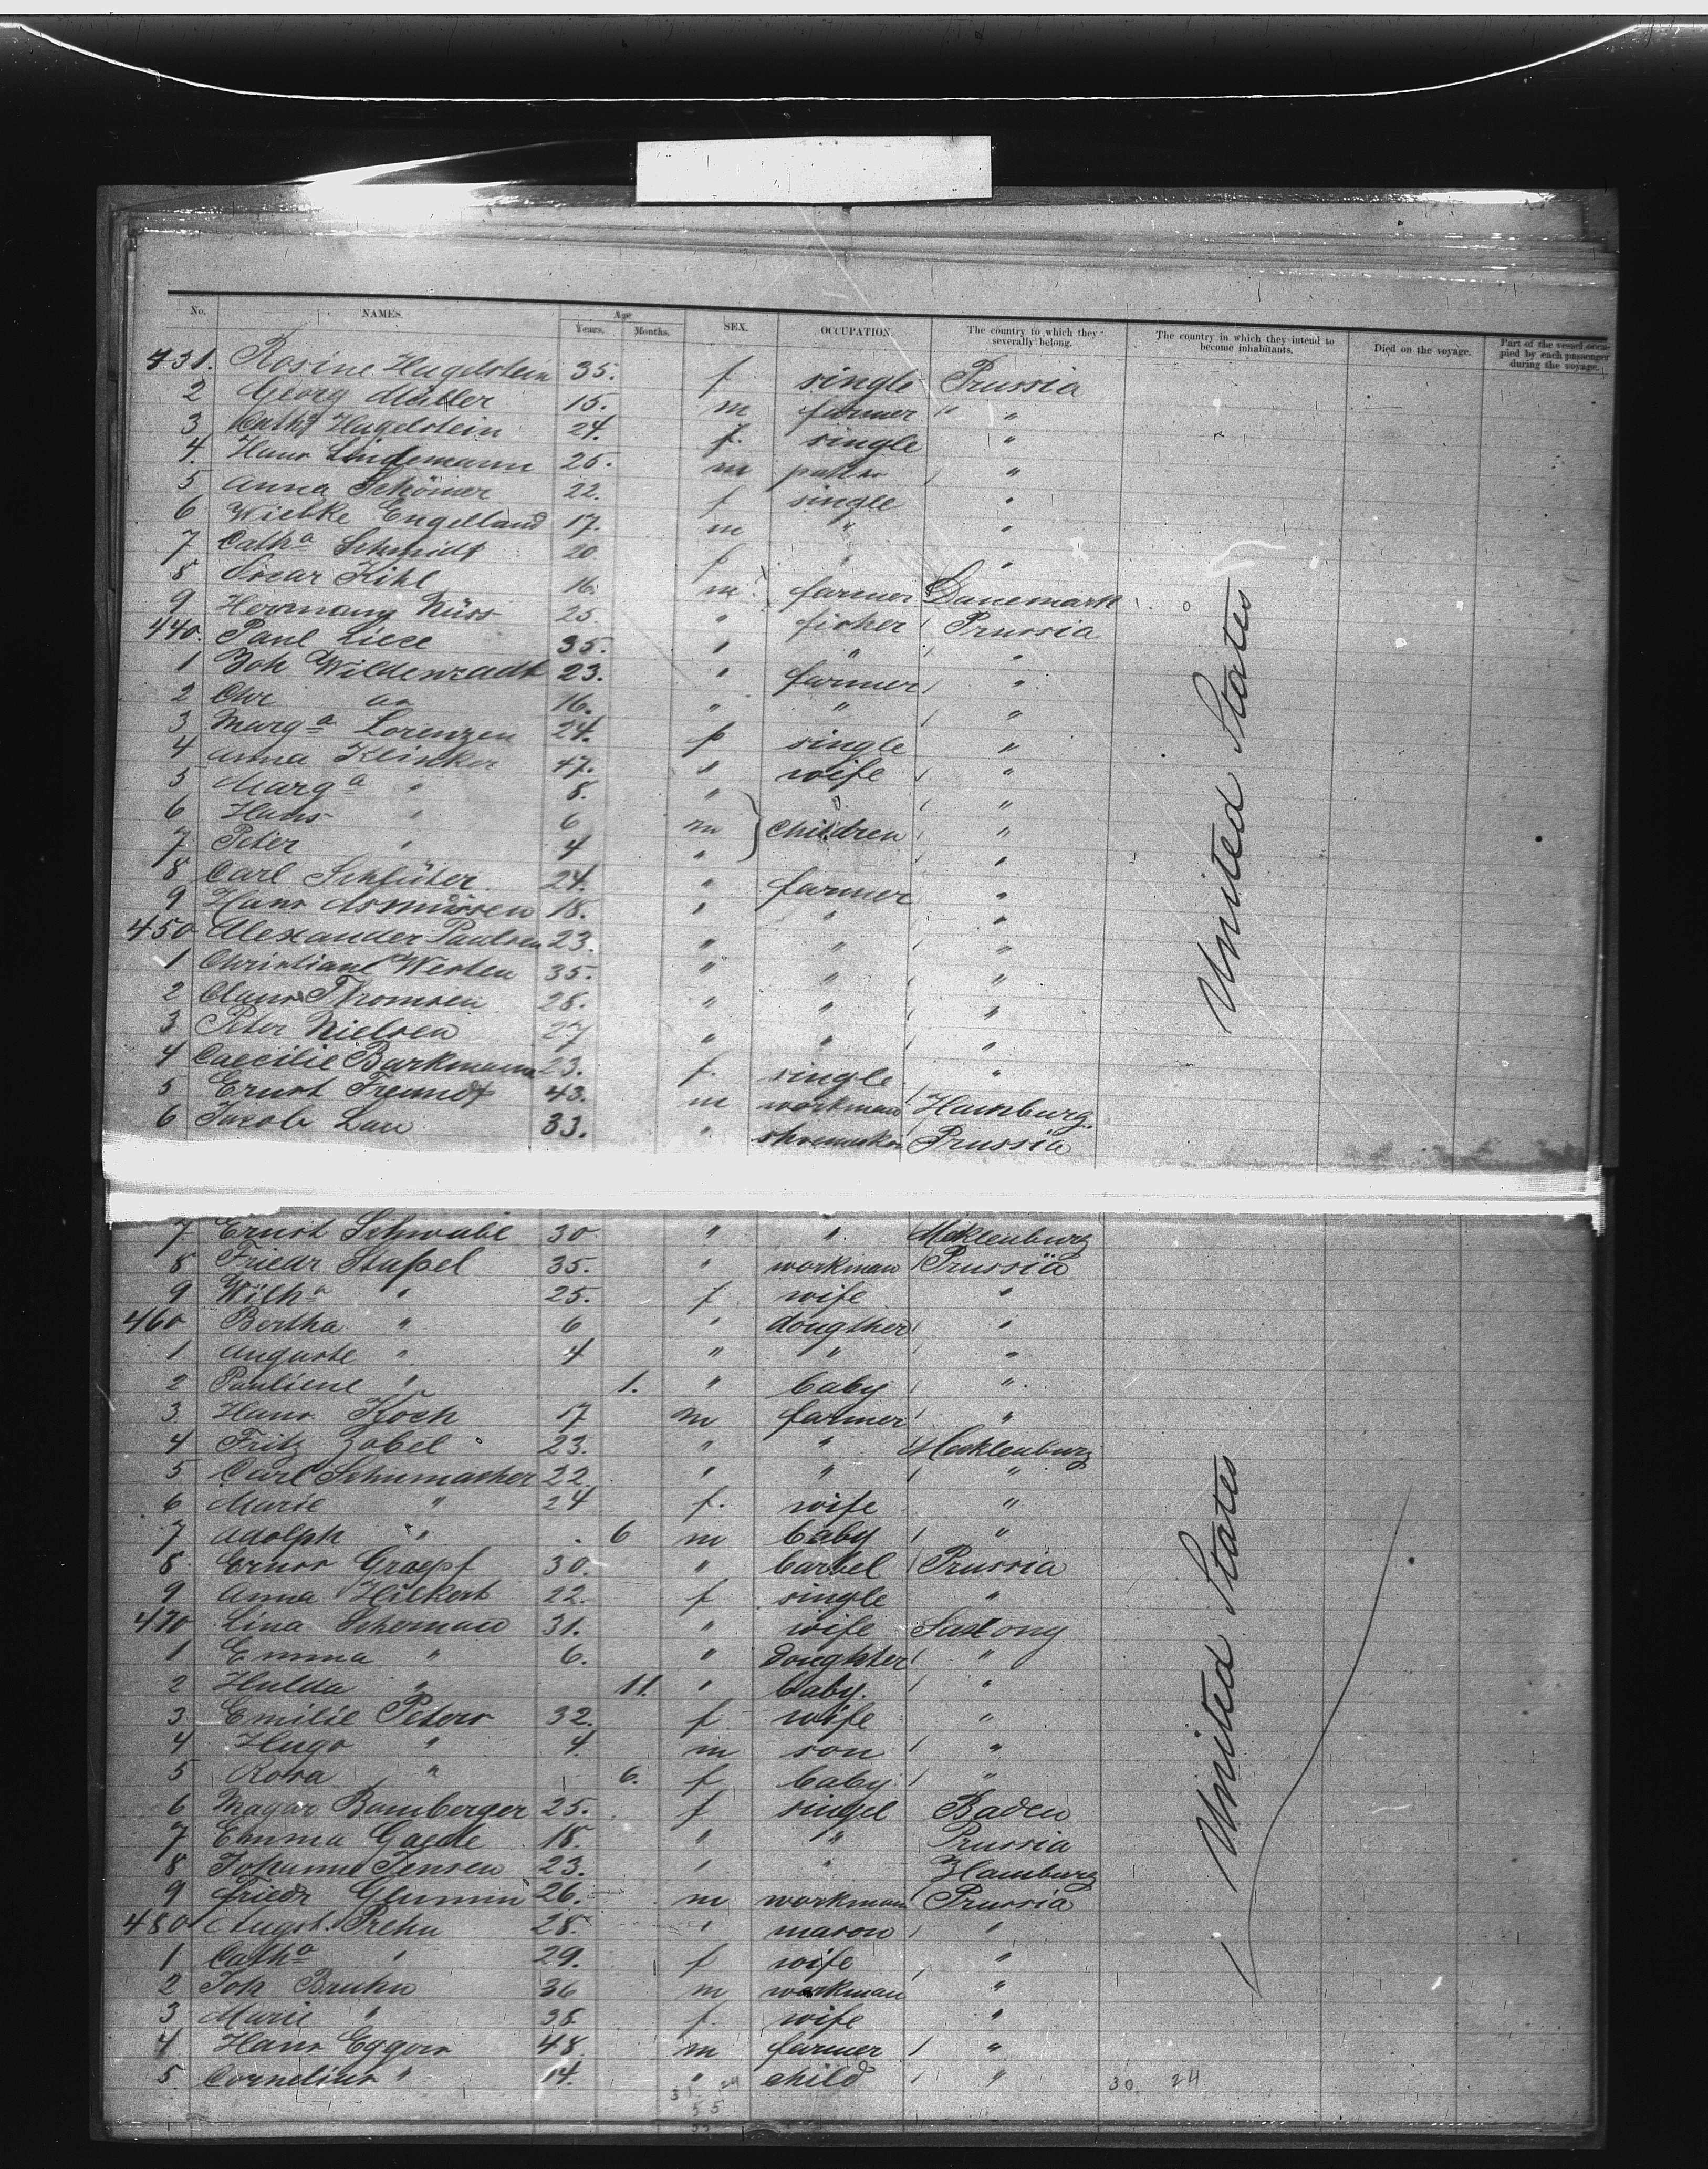 No. NAMES. Age Years. Months. SEX. OCCUPATION. The country to which they severally belong. The country in which they intend to become inhabitants. Died on the voyage. Part of the vessel occupied by each passenger during the voyage.
431. Rosine Hugelstein 35. f single Prussia
2 Georg Müller 15. m farmer " "
3 Cath Hagelstein 24. f. single "
4. Hans Lindemann 25. m "
5 Anna Schömer 22. f single "
6 Wiebke Engelland 17. m " "
7 Catha Schmidt 20 f " "
8 Oscar Kihl 16. m farmer Danemark
9 Hermann Nüss 25. " fisher Prussia
440. Paul Liece 35. " " "
1 Joh Wildenradt 23. " farmer "
2 Chr 16. " " "
3 Marga Lorenzen 24. f single "
4 Anna Klinker 47. " wife "
5 Marga " 8. " "
6 Hans " 6 m children "
7 Peter " 4 " "
8 Carl Schlüter 24. " farmer "
9 Hans Asmussen 18. " " "
450 Alexander Paulsen 23. " " "
1 Christian Westen 35. " " "
2 Claus Thomsen 28. " " "
3 Peter Nielsen 27 " " "
4 Caecilie Barkmann 23. f. single "
5 Ernst Freundt 43. m workman Hamburg.
6 Jacob Lau 33. " shoemaker Prussia
United States
7 Ernst Schwabe 30 " " Mecklenburg
8 Friedr Stapel 35. " workman Prussia
9 Wilha " 25. f wife "
460 Bertha " 6 " dougther "
1 Auguste " 4 " " "
2 Pauliene " 1. " baby "
3 Hans Koch 17 m farmer "
4 Fritz Zobel 23. " " Mecklenburg
5 Carl Schumacher 22. " " "
6 Marie " 24 f. wife "
7 Adolph " 6 m baby "
8 Ernst Graepf 30. " barbel Prussia
9 Anna Hilkert 22. f single "
470 Lina Scherman 31. " wife Saxony
1 Emma " 6. " doughter "
2 Hulda " 11. " baby. "
3 Emilie Peters 32. f wife "
4 Hugo " 4. m son "
5 Rosa " 6. f baby "
6 Bamberger 25. f singel Baden
7 Emma Gaede 18. " " Prussia
8 Johanne Jensen 23. " " Hamburg
9 Friedr 26. m workman Prussia
480 Augst. Prehn 28. " mason "
1 Catha " 29. f wife "
2 Joh Bruhn 36 m workman "
3 Marie " 38 f. wife "
4 Hans Eggers 48 m farmer "
5 Cornelius " 14. " child "
United States
31. 24 30. 24
55